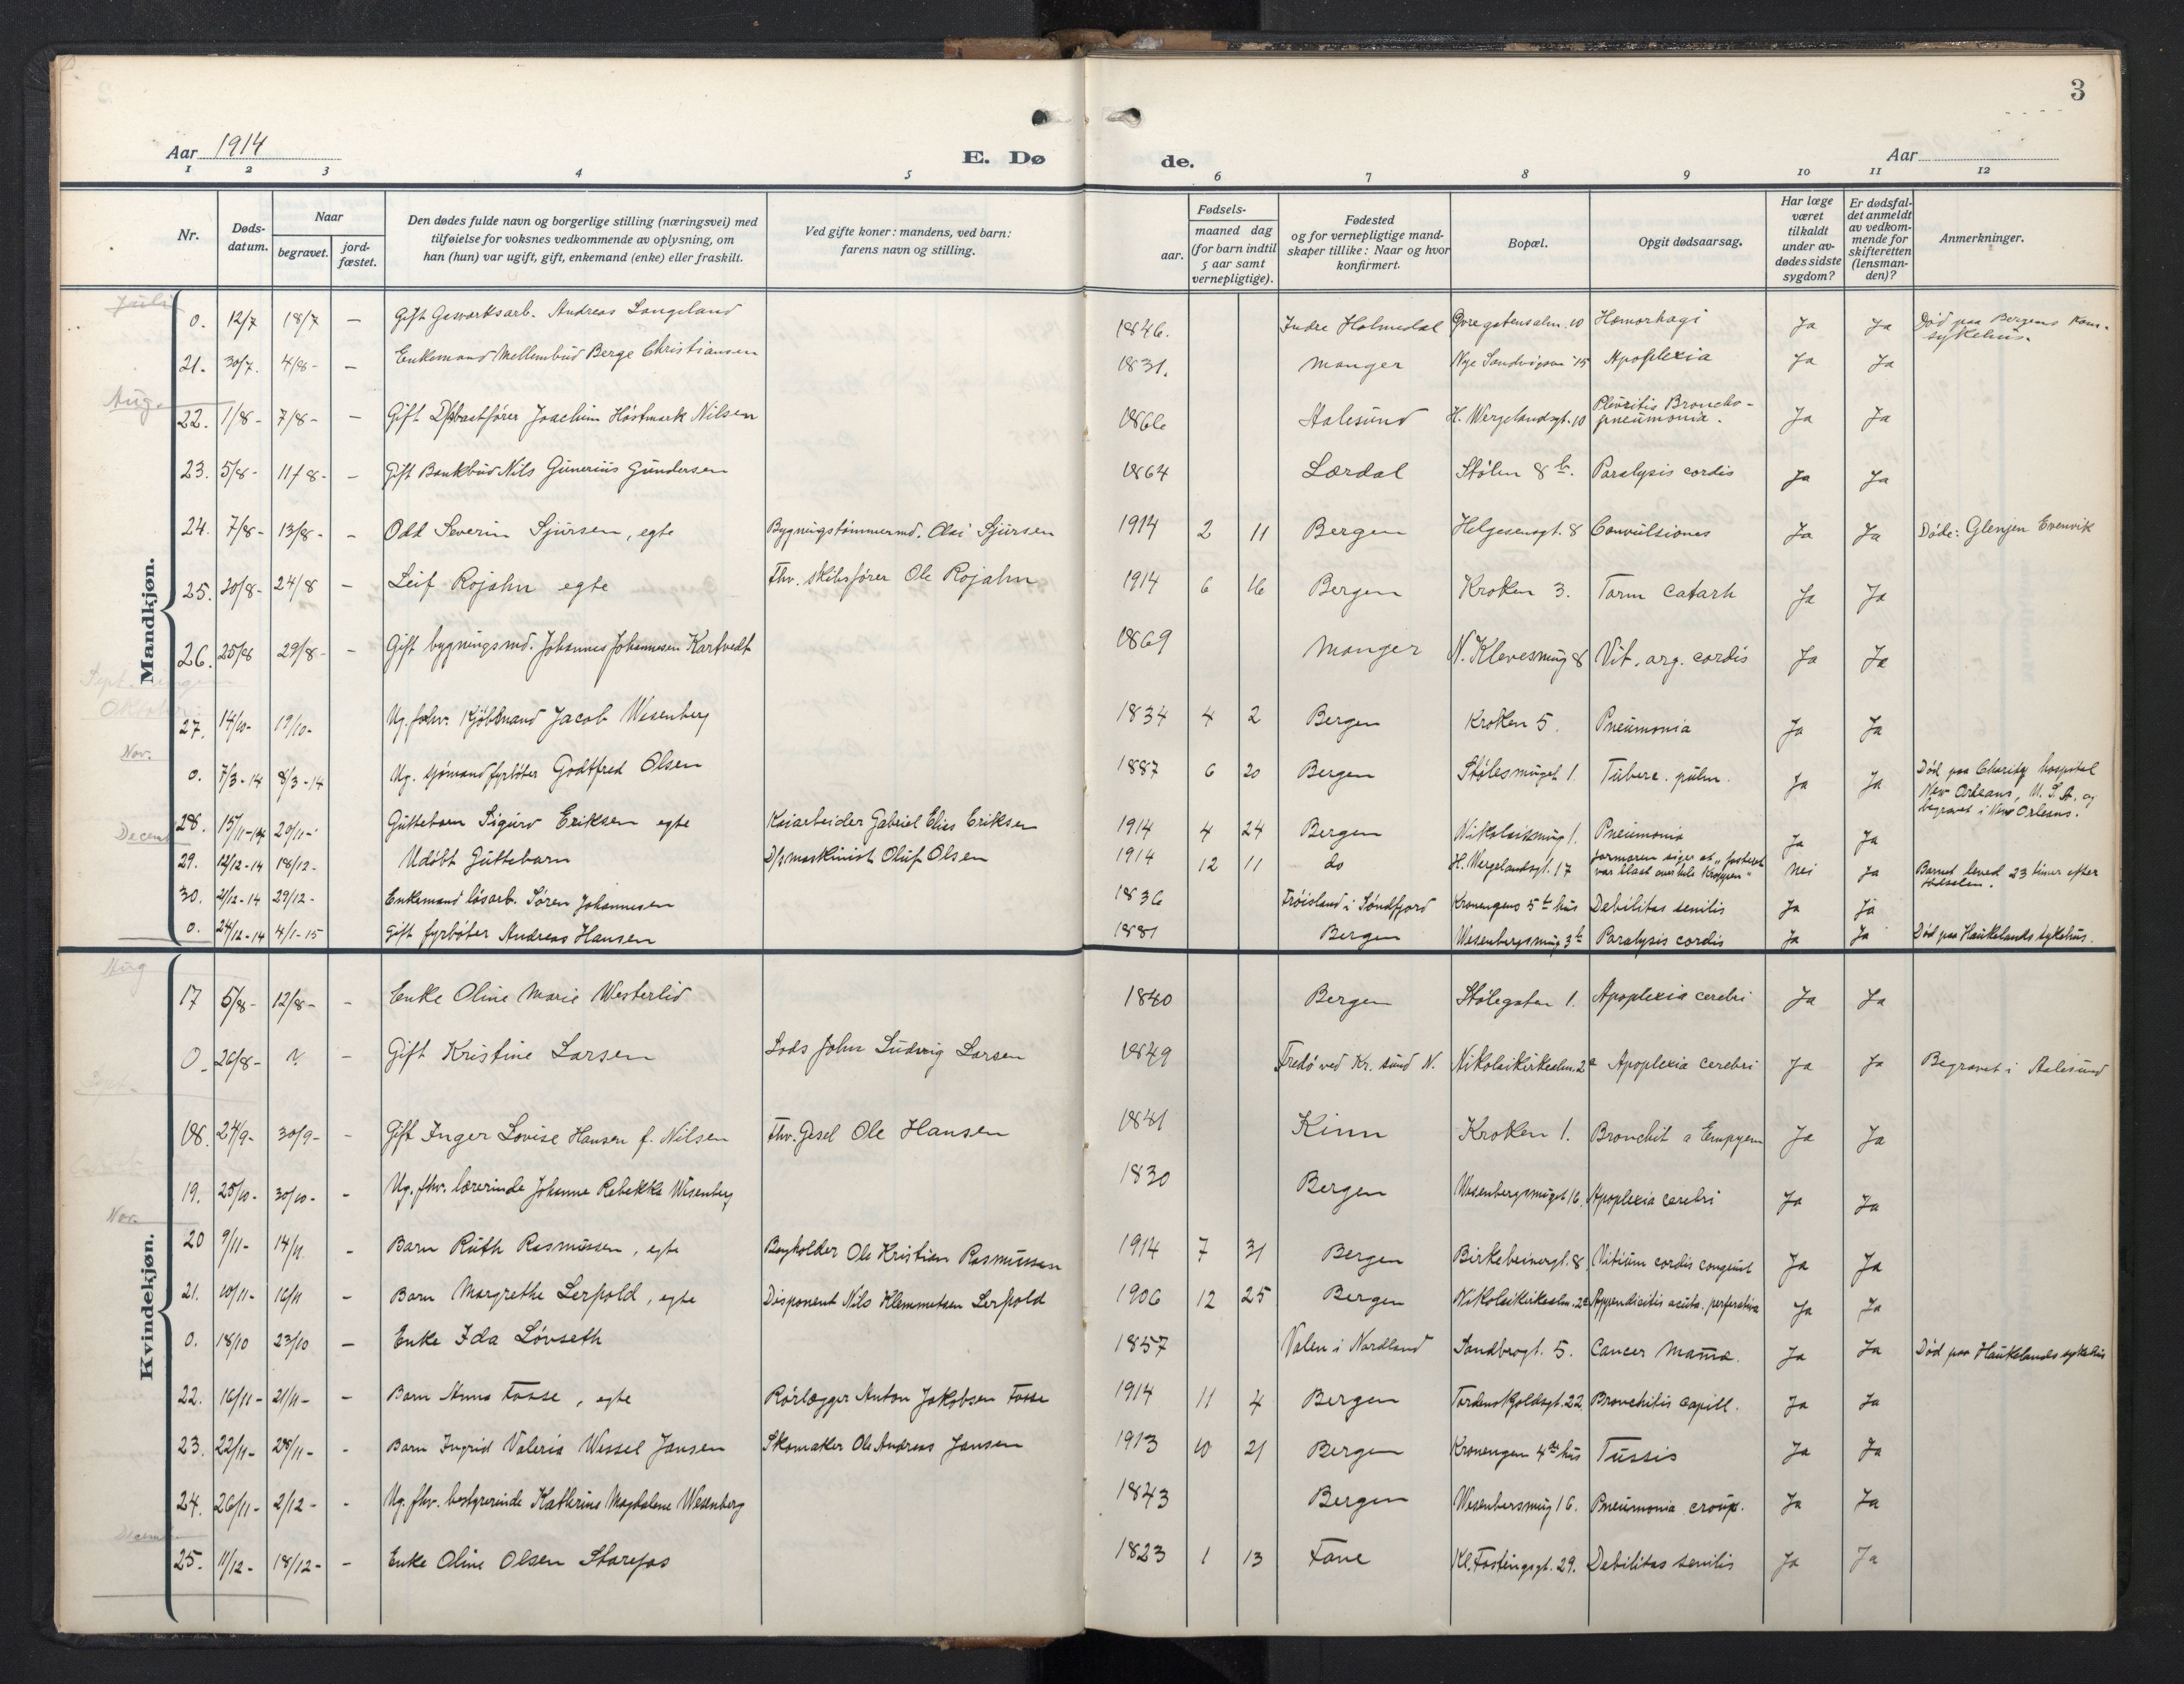 3
Aar 1914
E. Dø de.
Aar
1 2 3 4 5 6 7 8 9 10 11 12
Nr.
Døds-
datum.
Naar
begravet.
jord-
fæstet.
Den dødes fulde navn og borgerlige stilling (næringsvei) med
tilføielse for voksnes vedkommende av oplysning, om
han (hun) var ugift, gift, enkemand (enke) eller fraskilt.
Ved gifte koner: mandens, ved barn:
farens navn og stilling.
Fødsels-
aar.
maaned dag
(for barn indtil
5 aar samt
vernepligtige).
Fødested
og for vernepligtige mand-
skaper tillike: Naar og hvor
konfirmert.
Bopæl.
Opgit dødsaarsag.
Har læge
været
tilkaldt
under av-
dødes sidste
sygdom?
Er dødsfal-
det anmeldt
av vedkom-
mende for
skifteretten
(lensman-
den)?
Anmerkninger.
Mandkjøn.
Juli
0. 12/7 18/7 — Gift Gasværksarb. Andreas Langeland 1846. Indre Holmedal Øvregatensalm. 10 Hæmorhagi Ja Ja Død paa Bergens Kom.
sykehus.
21. 30/7. 4/8 - — Enkemand Mellembud Berge Christiansen 1831. Manger Nye Sandvigsvei 15 Apoplexia Ja Ja
Aug.
22. 1/8 - 7/8 - — Gift D/sbaatfører Joachim Høstmark Nilsen 1866 Aalesund H. Wergelandsgt. 10 Pleuritis Broncho-
pneumonia. Ja Ja
23. 5/8 - 11/8 - — Gift Bankbud Nils Gunerius Gundersen 1864 Lærdal Stølen 8 b. Paralysis cordis Ja Ja
24. 7/8 - 13/8 - - Odd Severin Sjursen, egte Bygningstømmermd. Olai Sjursen 1914 2 11 Bergen Helgesensgt. 8 Convulsiones Ja Ja Døde: Glenjen Evenvik
25. 20/8 - 24/8 — Leif Rojahn egte Fhv. skibsfører Ole Rojahn 1914 6 16 Bergen Kroken 3. Tarm Catarh Ja Ja
26. 25/8 29/8 - - Gift bygningsmd. Johannes Johannesen Kartvedt 1869 Manger N. Klevesmug 8 Vit. org. cordis Ja Ja
Sept. ingen
Oktober
27. 14/10 - 19/10 - Ug. fohv. Kjøbmand Jacob Wesenberg 1834 4 2 Bergen Kroken 5. Pneumonia Ja Ja
Nov.
0. 7/3 - 14 8/3 - 14 Ug. sjømand fyrbøter Godtfred Olsen 1887 6 20 Bergen Stølesmuget 1. Tuberc. pulm. Ja Ja Død paa Charity hospital
New Orleans, U. S. A. og
begravet i New Orleans.
Decem
28. 15/11-14 20/11 - Guttebarn Sigurd Eriksen egte Kaiarbeider Gabriel Elias Eriksen 1914 4 24 Bergen Nikolaismug 1. Pneumonia Ja Ja
29. 12/12-14 18/12 - Udøbt Guttebarn D/s maskinist Oluf Olsen 1914 12 11 do H. Wergelandsgt. 17 Jormoren siger at "fosteret
var blaat over hele kroppen" Nei Ja Barnet leved 23 timer efter
fødselen.
30. 21/12-14 29/12 - Enkemand løsarb. Søren Johannesen 1836 Frøisland i Søndfjord Kronengens 5 te hus Debilitas senilis Ja Ja
0. 24/12-14 4/1-15 Gift fyrbøter Andreas Hansen 1881 Bergen Wesenbergsmug 3 b Paralysis cordis Ja Ja Død paa Haukelands sykehus.
Kvindekjøn.
Aug
17 5/8 - 12/8 - - Enke Oline Marie Westerlid 1840 Bergen Stølegaten 1. Apoplexia cerebri Ja Ja
0. 26/8 - ? - Gift Kristine Larsen Lods John Ludvig Larsen 1849 Fredø ved Kr. sund N. Nikolaikirkealm. 2 a Apoplexia cerebri Ja Ja Begravet i Aalesund
18. 24/9 - 30/9 - - Gift Inger Lovise Hansen f. Nilsen Fhv. Gesel Ole Hansen 1841 Kinn Kroken 1. Bronchit a Empyem Ja Ja
19. 25/10 - 30/10 - - Ug. fhv. lærerinde Johanne Rebekka Wesenberg 1830 Bergen Wesenbergsmuget 16. Apoplexia cerebri Ja Ja
Nov.
20 9/11 - 14/11 - Barn Ruth Rasmussen, egte Bogholder Ole Kristian Rasmussen 1914 7 31 Bergen Birkebeinergt. 8 Vitium cordis congenit Ja Ja
21. 10/11 - 16/11 - Barn Margrethe Lerpold, egte Disponent Nils Klemmetsen Lerpold 1906 12 25 Bergen Nikolaikirkealm. 2 a Appendicitis acuta. perforativa Ja Ja
0. 18/10 23/10 — Enke Ida Løvseth 1857 Valen i Nordland Sandbrogt. 5. Cancer Mama. Ja Ja Død paa Haukelands sykehus
22. 16/11 - 21/11 - - Barn Anna Fosse, egte Rørlægger Anton Jakobsen Fosse 1914 11 4 Bergen Tordenskjoldsgt. 22 Bronchitis capill. Ja Ja
23. 22/11 - 28/11 - - Barn Ingrid Valeria Wessel Jansen Skomaker Ole Andreas Jansen 1913 10 21 Bergen Kronengen 4 de hus Tussis Ja Ja
24. 26/11 - 2/12 - - Ug. fhv. bestyrerinde Kathrine Magdalene Wesenberg 1843 Bergen Wesenbersmug 16. Pneumonia croup. Ja Ja
Decem
25. 11/12 - 18/12 - - Enke Oline Olsen Storefos 1823 1 13 Fane Kl. Fastingsgt. 29. Debilitas senilis Ja Ja